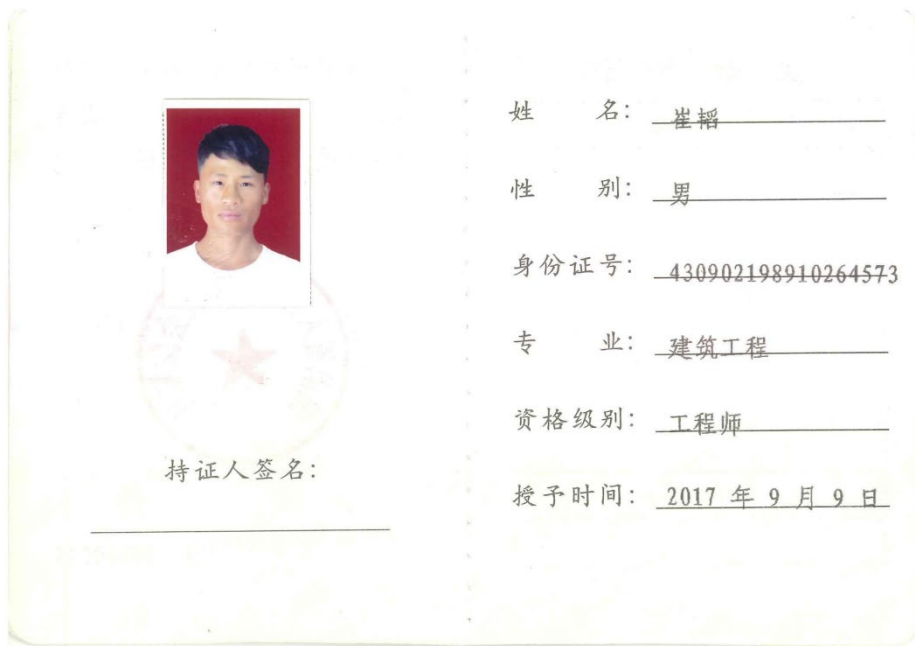 持证人签名：
姓 名： 崔韬
性 别： 男
身份证号： 430902198910264573
专 业： 建筑工程
资格级别： 工程师
授予时间： 2017 年 9 月 9 日